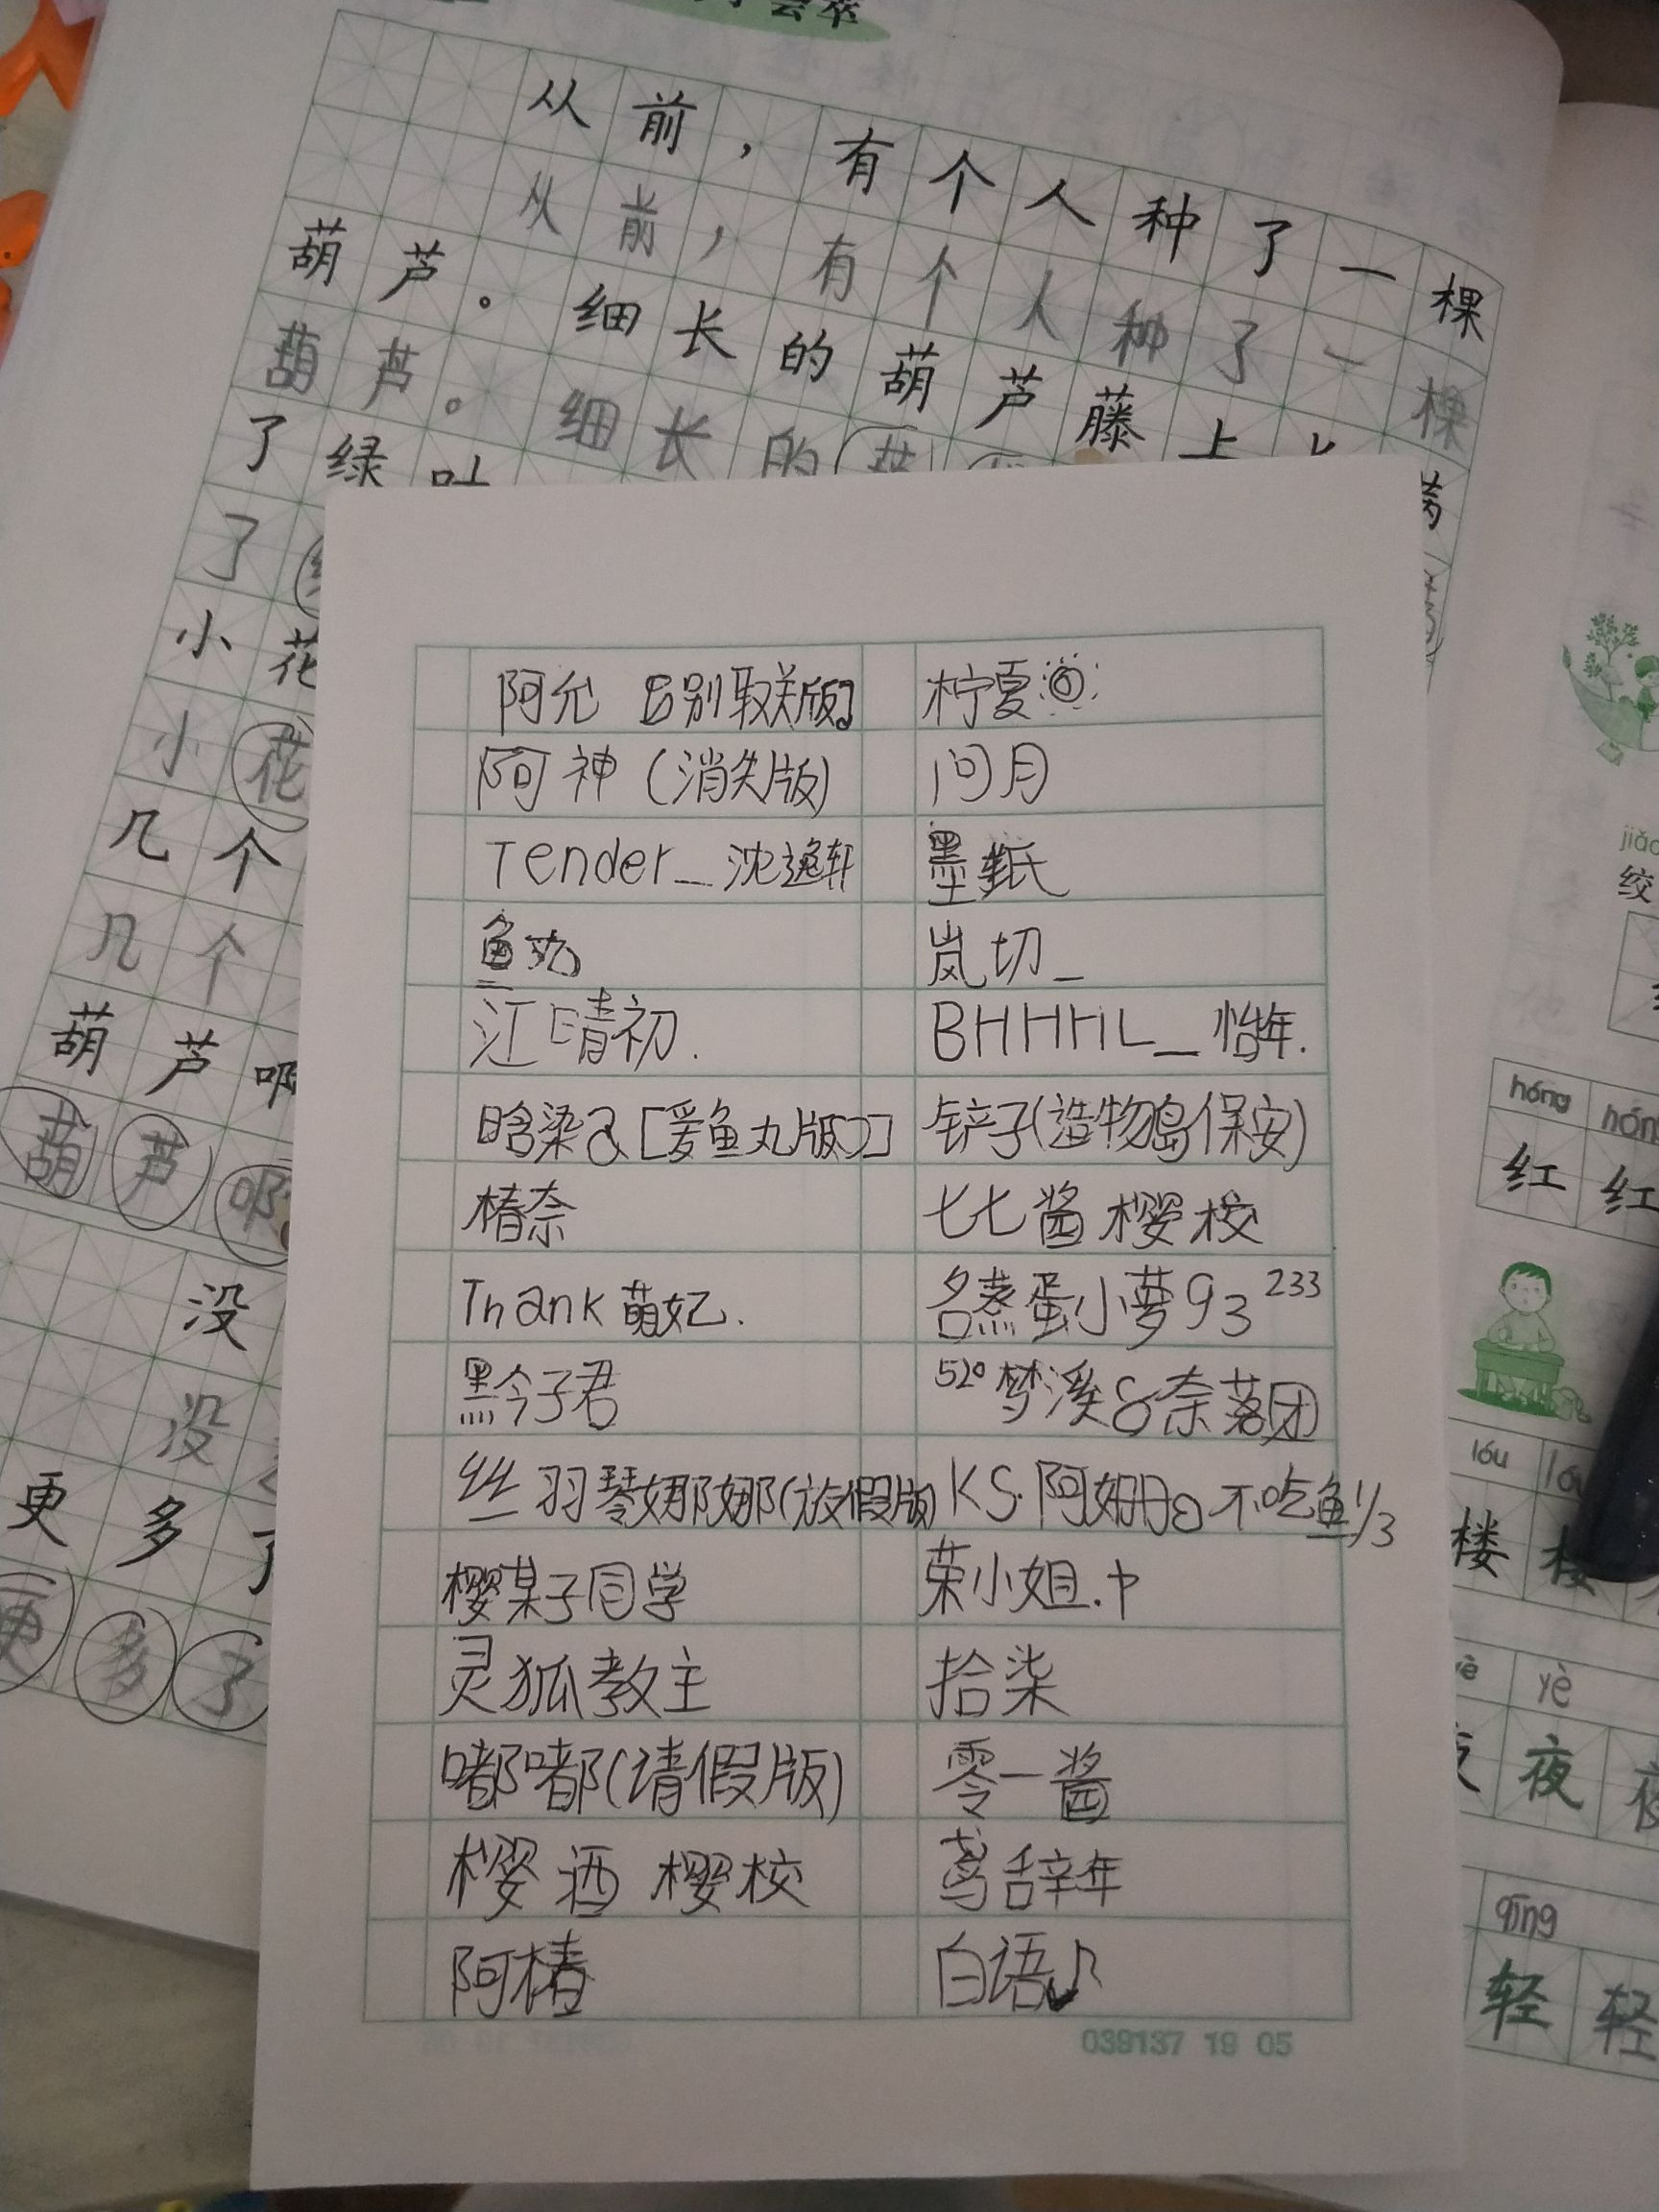 从前，有个人种了一棵
从前，有个人种了一棵
葫芦。细长的葫芦藤上
葫芦。细长的
了绿叶
了
小花
小花
几个
几个
葫芦啊
葫芦啊
没
没
更多了
更多了
阿允 【别取关版】 柠夏
阿神(消失版) 问月
Tender_沈逸轩 墨纸
鱼丸 岚切_
江晴初. BHHHL_怡年.
晗染a[爱鱼丸版] 铲子(造物岛保安)
椿奈 七七酱 樱校
Thank萌妃. 名蒸蛋小萝93 233
黔子君 520梦溪&奈落团
丝羽琴娜娜(放假版) KS.阿姗 不吃鱼1/3
樱某子同学 荣小姐.中
灵狐教主 拾柒
嘟嘟(请假版) 零一酱
樱洒 樱校 鸢辞年
阿椿 白语♪
039137 19 05
jiǎo
绞
hóng hóng
红 红
lóu lóu
楼 楼
yè yè
夜 夜
qīng
轻 轻